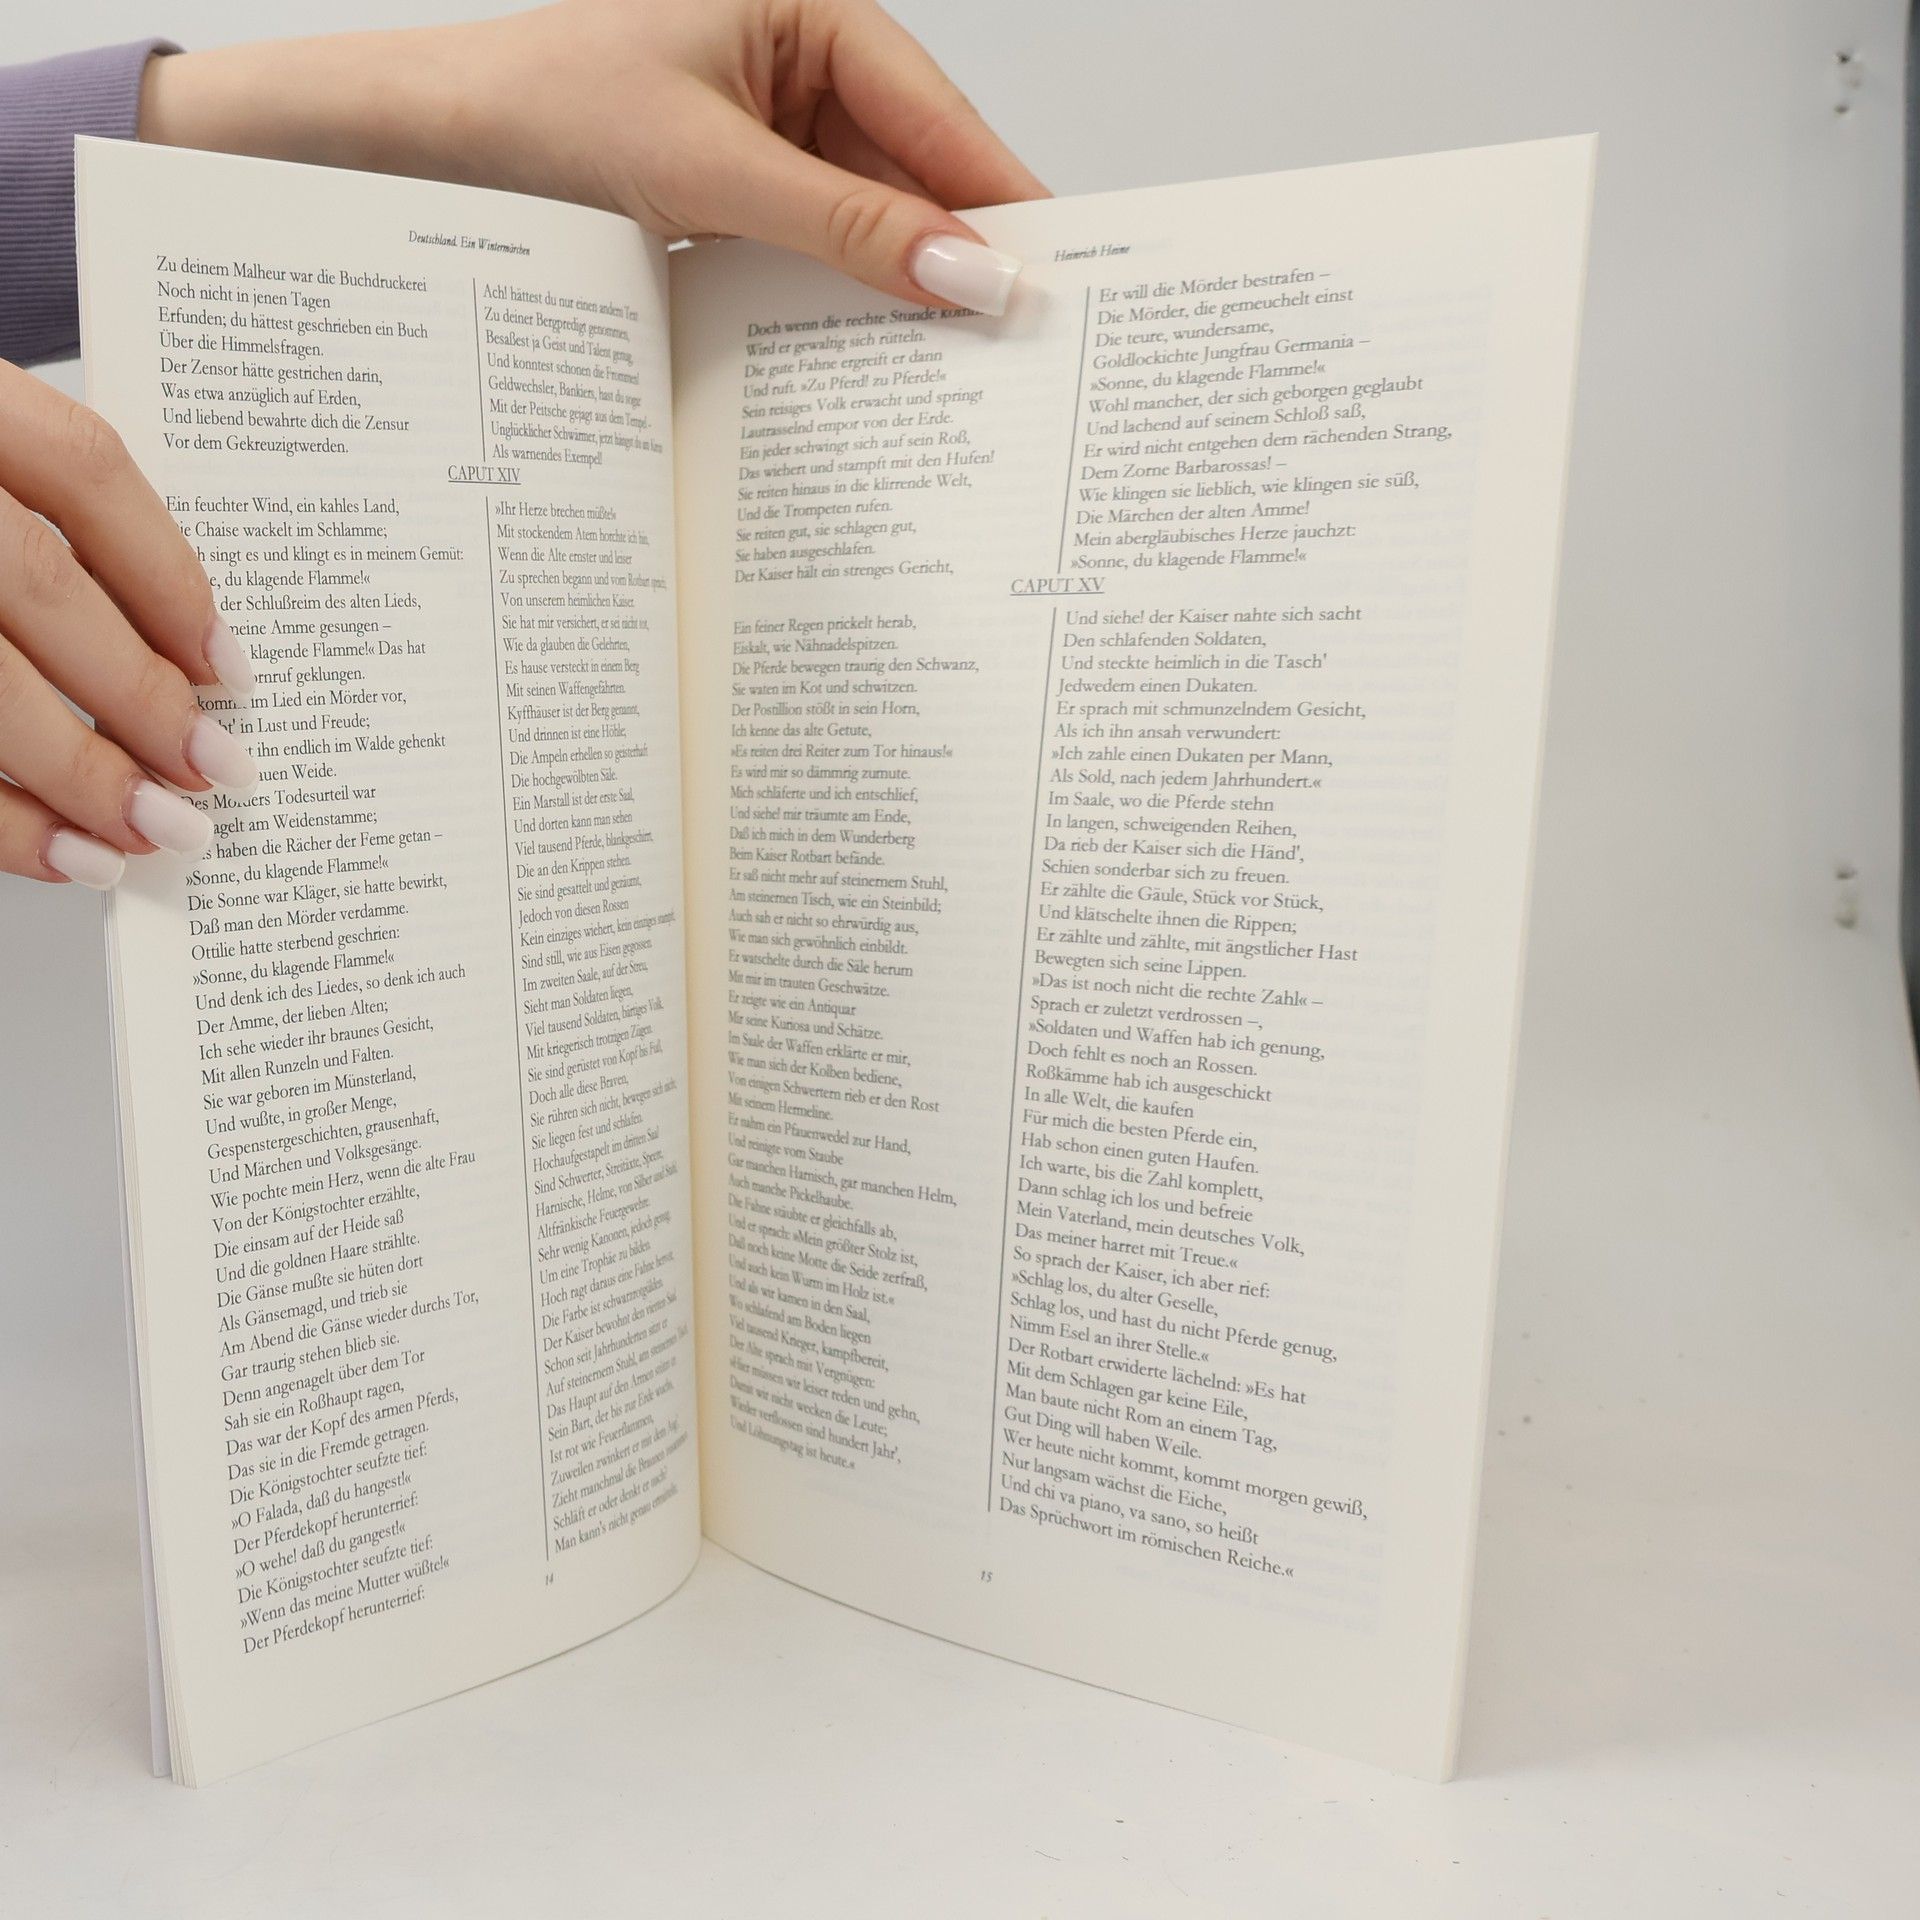 Deutschland. Ein Wintermärchen
Zu deinem Malheur war die Buchdruckerei
Noch nicht in jenen Tagen
Erfunden; du hättest geschrieben ein Buch
Über die Himmelsfragen.
Der Zensor hätte gestrichen darin,
Was etwa anzüglich auf Erden,
Und liebend bewahrte dich die Zensur
Vor dem Gekreuzigtwerden.
Ach! hättest du nur einen andern Text
Zu deiner Bergpredigt genommen,
Besaßest ja Geist und Talent genug,
Und konntest schonen die Frommen!
Geldwechsler, Bankiers, hast du sogar
Mit der Peitsche gejagt aus dem Tempel –
Unglücklicher Schwärmer, jetzt hängst du am Kreuz
Als warnendes Exempel!
CAPUT XIV
Ein feuchter Wind, ein kahles Land,
ie Chaise wackelt im Schlamme;
h singt es und klingt es in meinem Gemüt:
e, du klagende Flamme!«
der Schlußreim des alten Lieds,
meine Amme gesungen –
klagende Flamme!« Das hat
ornruf geklungen.
komm im Lied ein Mörder vor,
bt' in Lust und Freude;
t ihn endlich im Walde gehenkt
auen Weide.
Des Mörders Todesurteil war
agelt am Weidenstamme;
s haben die Rächer der Feme getan –
»Sonne, du klagende Flamme!«
Die Sonne war Kläger, sie hatte bewirkt,
Daß man den Mörder verdamme.
Ottilie hatte sterbend geschrien:
»Sonne, du klagende Flamme!«
Und denk ich des Liedes, so denk ich auch
Der Amme, der lieben Alten;
Ich sehe wieder ihr braunes Gesicht,
Mit allen Runzeln und Falten.
Sie war geboren im Münsterland,
Und wußte, in großer Menge,
Gespenstergeschichten, grausenhaft,
Und Märchen und Volksgesänge.
Wie pochte mein Herz, wenn die alte Frau
Von der Königstochter erzählte,
Die einsam auf der Heide saß
Und die goldnen Haare strählte.
Die Gänse mußte sie hüten dort
Als Gänsemagd, und trieb sie
Am Abend die Gänse wieder durchs Tor,
Gar traurig stehen blieb sie.
Denn angenagelt über dem Tor
Sah sie ein Roßhaupt ragen,
Das war der Kopf des armen Pferds,
Das sie in die Fremde getragen.
Die Königstochter seufzte tief:
»O Falada, daß du hangest!«
Der Pferdekopf herunterrief:
»O wehe! daß du gangest!«
Die Königstochter seufzte tief:
»Wenn das meine Mutter wüßte!«
Der Pferdekopf herunterrief:
»Ihr Herze brechen müßte!«
Mit stockendem Atem horchte ich hin,
Wenn die Alte ernster und leiser
Zu sprechen begann und vom Rotbart sprach,
Von unserem heimlichen Kaiser.
Sie hat mir versichert, er sei nicht tot,
Wie da glauben die Gelehrten,
Es hause versteckt in einem Berg
Mit seinen Waffengefährten.
Kyffhäuser ist der Berg genannt,
Und drinnen ist eine Höhle;
Die Ampeln erhellen so geisterhaft
Die hochgewölbten Säle.
Ein Marstall ist der erste Saal,
Und dorten kann man sehen
Viel tausend Pferde, blankgeschirrt,
Die an den Krippen stehen.
Sie sind gesattelt und gezäumt,
Jedoch von diesen Rossen
Kein einziges wiehert, kein einziges stampft,
Sind still, wie aus Eisen gegossen.
Im zweiten Saale, auf der Streu,
Sieht man Soldaten liegen,
Viel tausend Soldaten, bärtiges Volk,
Mit kriegerisch trotzigen Zügen.
Sie sind gerüstet von Kopf bis Fuß,
Doch alle diese Braven,
Sie rühren sich nicht, bewegen sich nicht,
Sie liegen fest und schlafen.
Hochaufgestapelt im dritten Saal
Sind Schwerter, Streitäxte, Speere,
Harnische, Helme, von Silber und Stahl,
Altfränkische Feuergewehre.
Sehr wenig Kanonen, jedoch genug,
Um eine Trophäe zu bilden.
Hoch ragt daraus eine Fahne hervor,
Die Farbe ist schwarzrotgülden.
Der Kaiser bewohnt den vierten Saal
Schon seit Jahrhunderten sitzt er
Auf steinernem Stuhl, am steinernen Tisch,
Das Haupt auf den Armen stützt er.
Sein Bart, der bis zur Erde wuchs,
Ist rot wie Feuerflammen,
Zuweilen zwinkert er mit dem Aug',
Zieht manchmal die Brauen zusammen.
Schläft er oder denkt er nach?
Man kann's nicht genau ermitteln;
14
Heinrich Heine
Doch wenn die rechte Stunde komm
Wird er gewaltig sich rütteln.
Die gute Fahne ergreift er dann
Und ruft: »Zu Pferd! zu Pferde!«
Sein reisiges Volk erwacht und springt
Lautrasselnd empor von der Erde.
Ein jeder schwingt sich auf sein Roß,
Das wiehert und stampft mit den Hufen!
Sie reiten hinaus in die klirrende Welt,
Und die Trompeten rufen.
Sie reiten gut, sie schlagen gut,
Sie haben ausgeschlafen.
Der Kaiser hält ein strenges Gericht,
Er will die Mörder bestrafen –
Die Mörder, die gemeuchelt einst
Die teure, wundersame,
Goldlockichte Jungfrau Germania –
»Sonne, du klagende Flamme!«
Wohl mancher, der sich geborgen geglaubt
Und lachend auf seinem Schloß saß,
Er wird nicht entgehen dem rächenden Strang,
Dem Zorne Barbarossas! –
Wie klingen sie lieblich, wie klingen sie süß,
Die Märchen der alten Amme!
Mein abergläubisches Herze jauchzt:
»Sonne, du klagende Flamme!«
CAPUT XV
Ein feiner Regen prickelt herab,
Eiskalt, wie Nähnadelspitzen.
Die Pferde bewegen traurig den Schwanz,
Sie waten im Kot und schwitzen.
Der Postillion stößt in sein Horn,
Ich kenne das alte Getute,
»Es reiten drei Reiter zum Tor hinaus!«
Es wird mir so dämmrig zumute.
Mich schläferte und ich entschlief,
Und siehe! mir träumte am Ende,
Daß ich mich in dem Wunderberg
Beim Kaiser Rotbart befände.
Er saß nicht mehr auf steinernem Stuhl,
Am steinernen Tisch, wie ein Steinbild;
Auch sah er nicht so ehrwürdig aus,
Wie man sich gewöhnlich einbildt.
Er watschelte durch die Säle herum
Mit mir im trauten Geschwätze.
Er zeigte wie ein Antiquar
Mir seine Kuriosa und Schätze.
Im Saale der Waffen erklärte er mir,
Wie man sich der Kolben bediene,
Von einigen Schwertern rieb er den Rost
Mit seinem Hermeline.
Er nahm ein Pfauenwedel zur Hand,
Und reinigte vom Staube
Gar manchen Harnisch, gar manchen Helm,
Auch manche Pickelhaube.
Die Fahne stäubte er gleichfalls ab,
Und er sprach: »Mein größter Stolz ist,
Daß noch keine Motte die Seide zerfraß,
Und auch kein Wurm im Holz ist.«
Und als wir kamen in den Saal,
Wo schlafend am Boden liegen
Viel tausend Krieger, kampfbereit,
Der Alte sprach mit Vergnügen:
»Hier müssen wir leiser reden und gehn,
Damit wir nicht wecken die Leute;
Wieder verflossen sind hundert Jahr',
Und Löhnungstag ist heute.«
Und siehe! der Kaiser nahte sich sacht
Den schlafenden Soldaten,
Und steckte heimlich in die Tasch'
Jedwedem einen Dukaten.
Er sprach mit schmunzelndem Gesicht,
Als ich ihn ansah verwundert:
»Ich zahle einen Dukaten per Mann,
Als Sold, nach jedem Jahrhundert.«
Im Saale, wo die Pferde stehn
In langen, schweigenden Reihen,
Da rieb der Kaiser sich die Händ',
Schien sonderbar sich zu freuen.
Er zählte die Gäule, Stück vor Stück,
Und klätschelte ihnen die Rippen;
Er zählte und zählte, mit ängstlicher Hast
Bewegten sich seine Lippen.
»Das ist noch nicht die rechte Zahl« –
Sprach er zuletzt verdrossen –,
»Soldaten und Waffen hab ich genung,
Doch fehlt es noch an Rossen.
Roßkämme hab ich ausgeschickt
In alle Welt, die kaufen
Für mich die besten Pferde ein,
Hab schon einen guten Haufen.
Ich warte, bis die Zahl komplett,
Dann schlag ich los und befreie
Mein Vaterland, mein deutsches Volk,
Das meiner harret mit Treue.«
So sprach der Kaiser, ich aber rief:
»Schlag los, du alter Geselle,
Schlag los, und hast du nicht Pferde genug,
Nimm Esel an ihrer Stelle.«
Der Rotbart erwiderte lächelnd: »Es hat
Mit dem Schlagen gar keine Eile,
Man baute nicht Rom an einem Tag,
Gut Ding will haben Weile.
Wer heute nicht kommt, kommt morgen gewiß,
Nur langsam wächst die Eiche,
Und chi va piano, va sano, so heißt
Das Sprüchwort im römischen Reiche.«
15